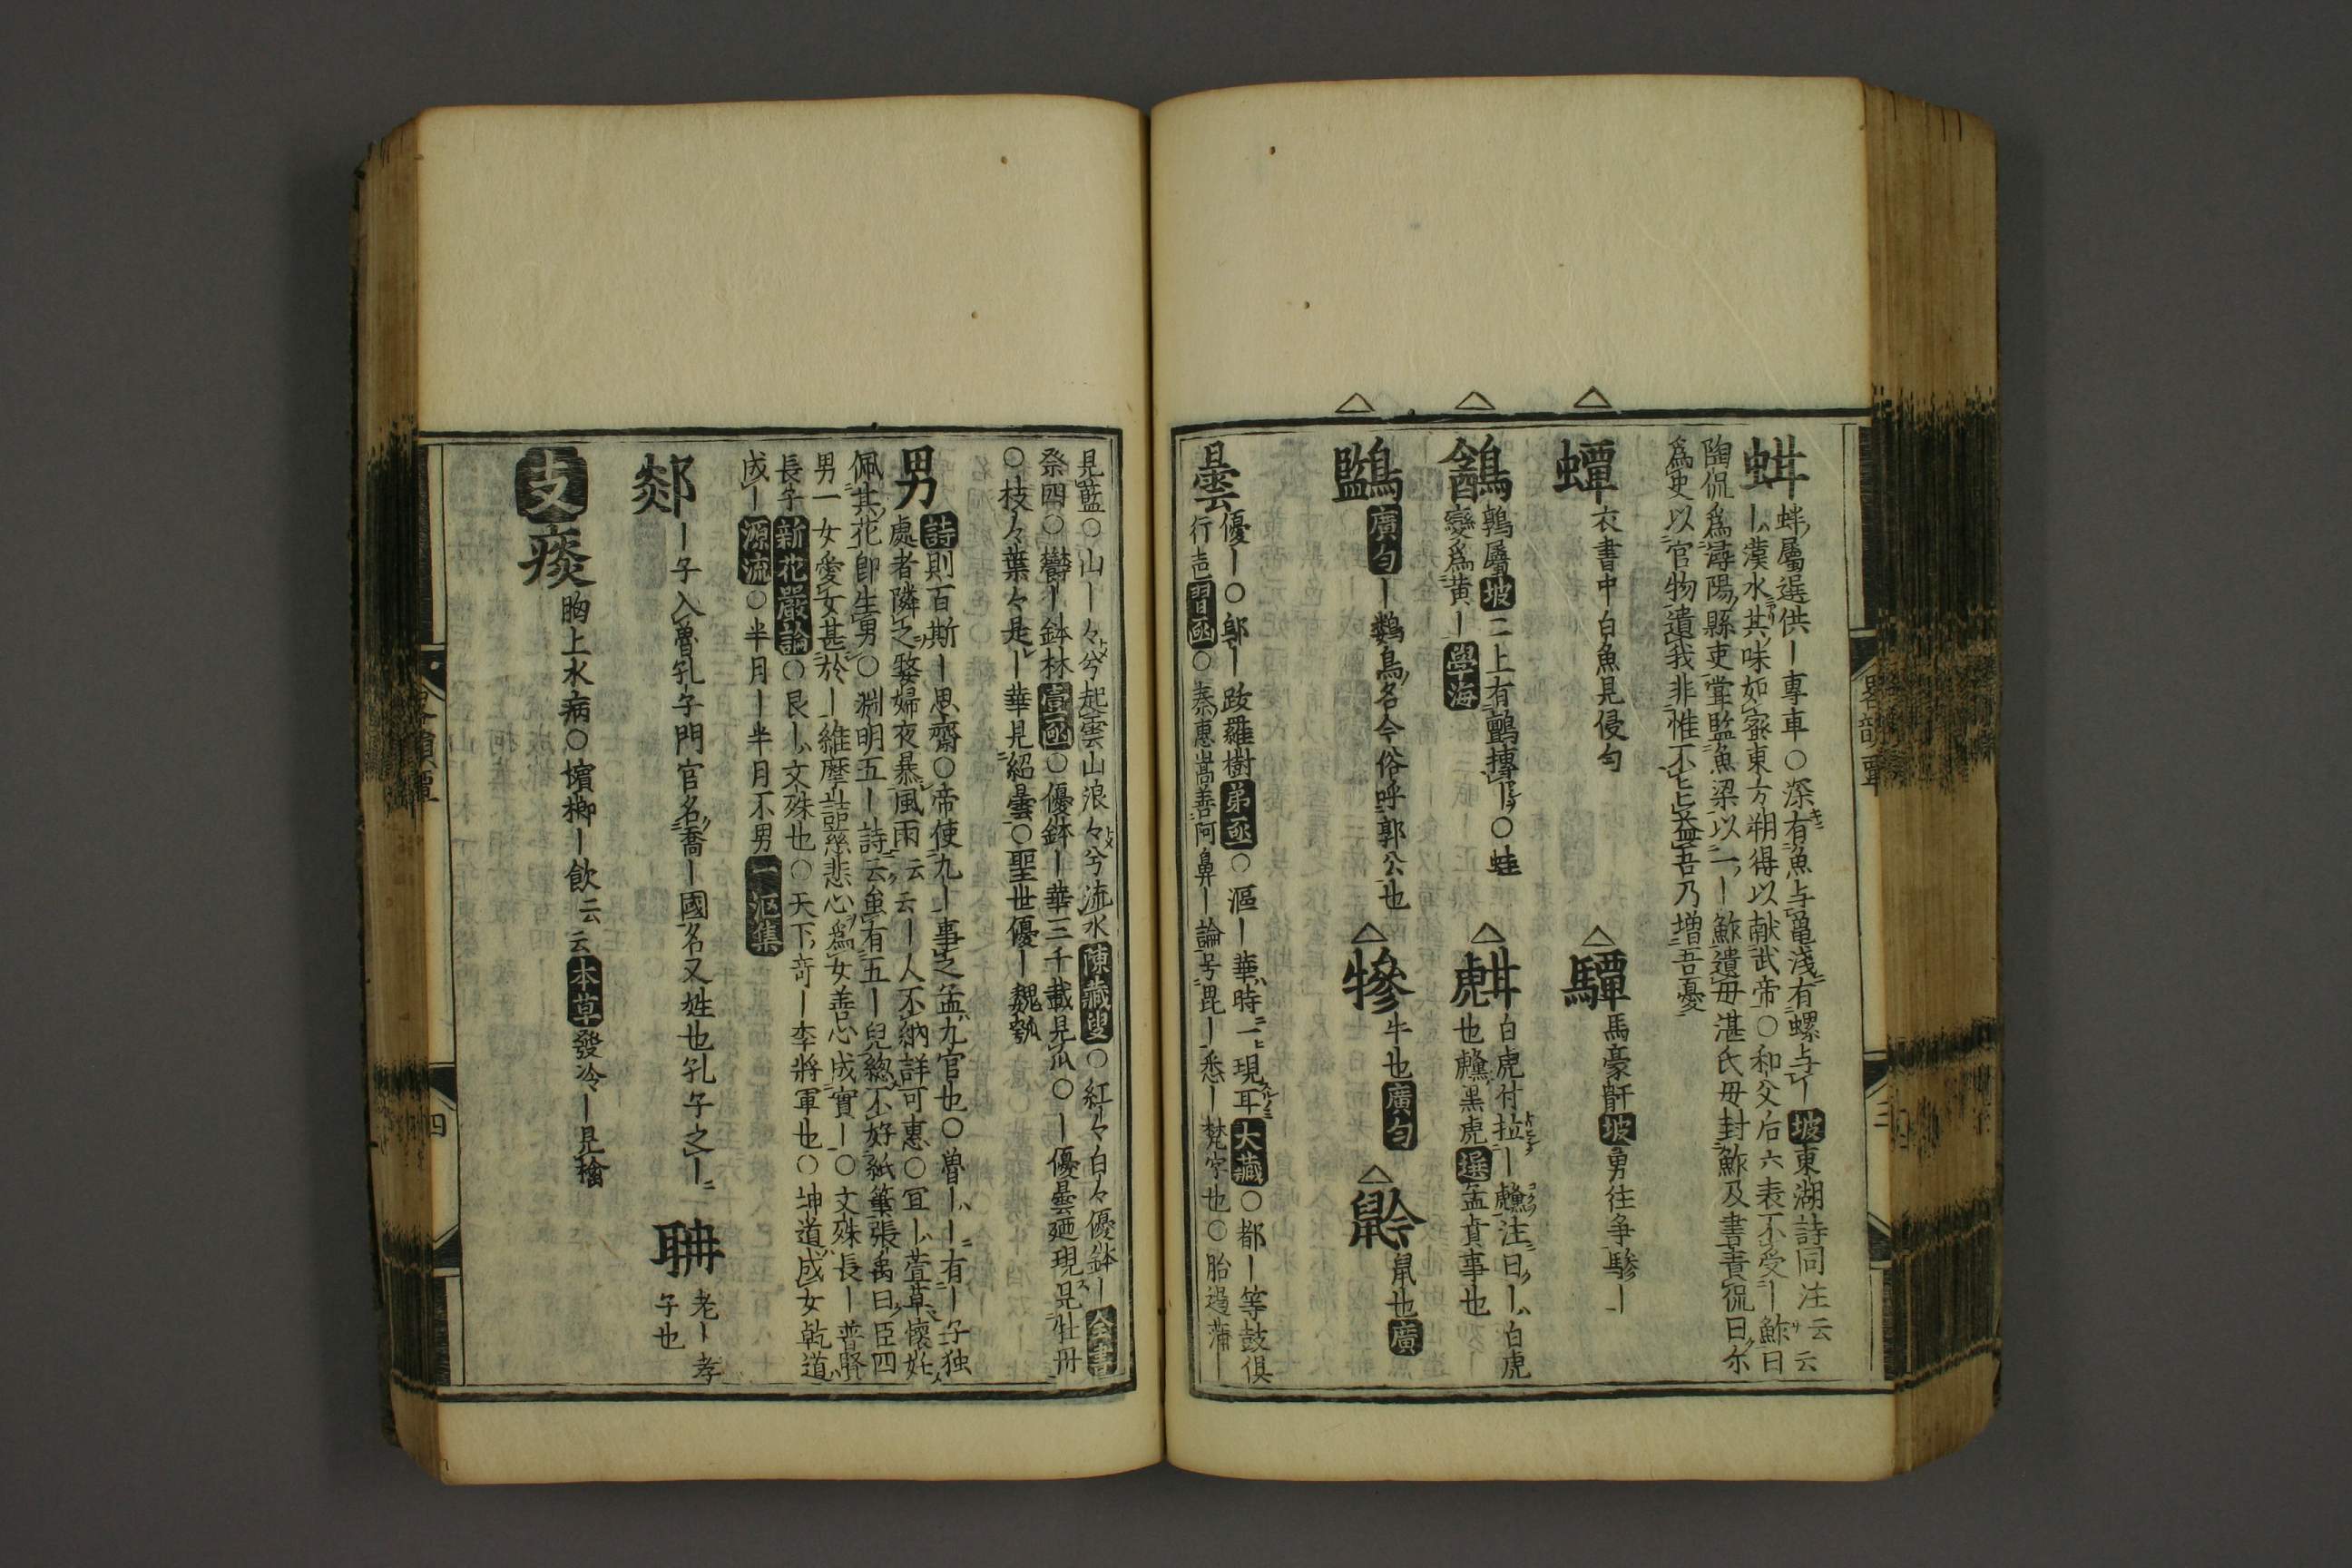 蚶蚌屬選供ー專車○深有魚与亀浅有螺与ー坡東湖詩同注云云
ー漢水其味如蜜東方朔得以献武帝○和父后六表不受ー鮓曰
陶侃爲潯陽縣吏甞監魚梁以一ー鮓遺母湛氏母封鮓及書責侃曰尓
爲吏以官物遺我非惟不益吾乃増吾憂
蟫衣書中白魚見侵勻
驔馬豪骭坡勇往争驂ー
鵪鶉屬坡二上有鸇摶ー○蛙
變爲黄ー學海
甝白虎付拉ー虪注曰ー白虎
也虪黒虎選孟賁事也
鷶廣勻ー鷜鳥名今俗呼郭公也
犙牛也廣勻
鼢鼠也廣
曇優ー○鄔ー跋羅樹弟亟○漚ー華時一現耳大藏○都ー等鼓俱
行吉習亟○秦惠嵩善阿鼻ー論号毘ー悉ー梵字也○胎邉蒲ー
見藍○山ー々兮起雲山浪々兮流水陳藏叟○紅々白々優鉢ー全書
祭四○欝ー鉢林宣亟○優鉢ー華三千載見瓜○ー優曇廼現見牡丹
○枝々葉々是ー華見紹曇○聖世優ー魏執
男詩則百斯ー思齋○帝使九ー事之孟九官也○曽ーー有ー子独
處者隣之嫠婦夜暴風雨云云ー人不納詳可惠○冝ー萱草懷妊
佩其花即生男○淵明五ー詩云虽有五ー兒總不好紙筆張禹曰臣四
男一女愛女甚於ー維摩詰慈悲心爲女善心成實ー○文殊長ー普賢
長子新花嚴論○艮ー文殊也○天下奇ー李將軍也○坤道成女乾道
成ー源流○半月ー半月不男一漚集
郯ー子入魯孔子門官名喬ー國名又姓也孔子之ー
聃老ー孝
子也
支痰胸上水病○擯榔ー飲云云本草發冷ー見檎